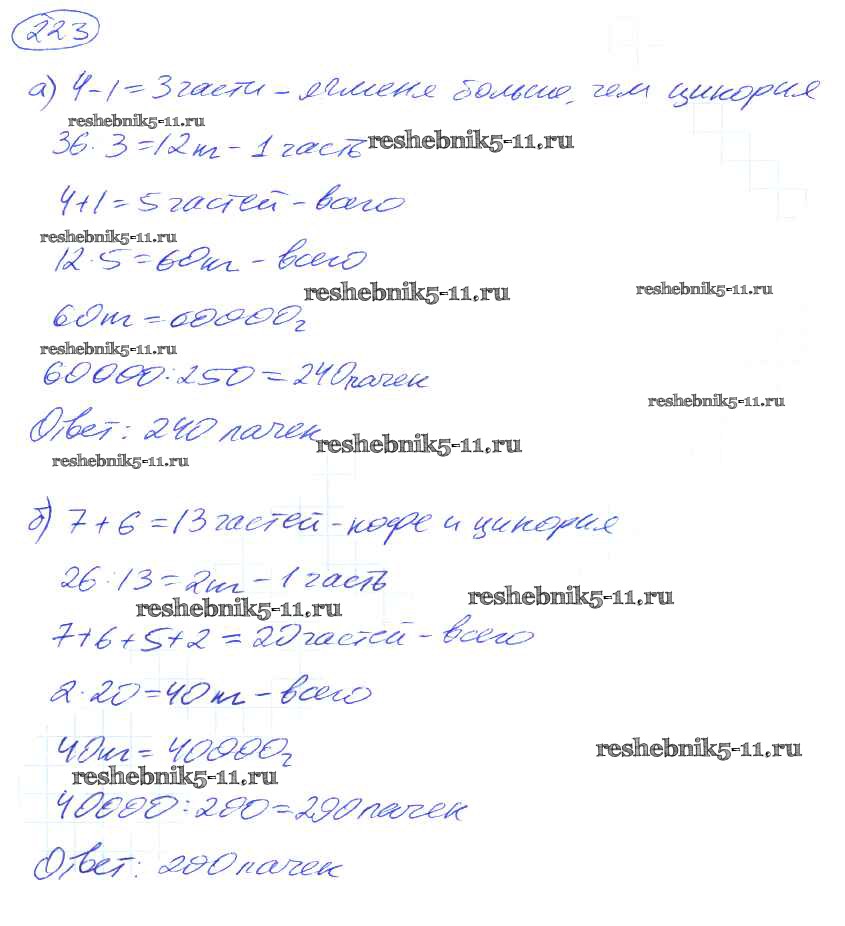 223
а) 4-1=3части - ячменя больше, чем цикория
reshebnik5-11.ru
36:3=12кг - 1 часть reshebnik5-11.ru
4+1=5частей - всего
reshebnik5-11.ru
12·5=60кг - всего
reshebnik5-11.ru reshebnik5-11.ru
60кг=60000г
reshebnik5-11.ru
60000:250=240пачек
reshebnik5-11.ru
Ответ: 240 пачек reshebnik5-11.ru
reshebnik5-11.ru
б) 7+6=13частей - кофе и цикория
26:13=2кг - 1 часть
reshebnik5-11.ru reshebnik5-11.ru
7+6+5+2=20частей - всего
2·20=40кг - всего
40кг=40000г reshebnik5-11.ru
reshebnik5-11.ru
40000:200=200пачек
Ответ: 200пачек